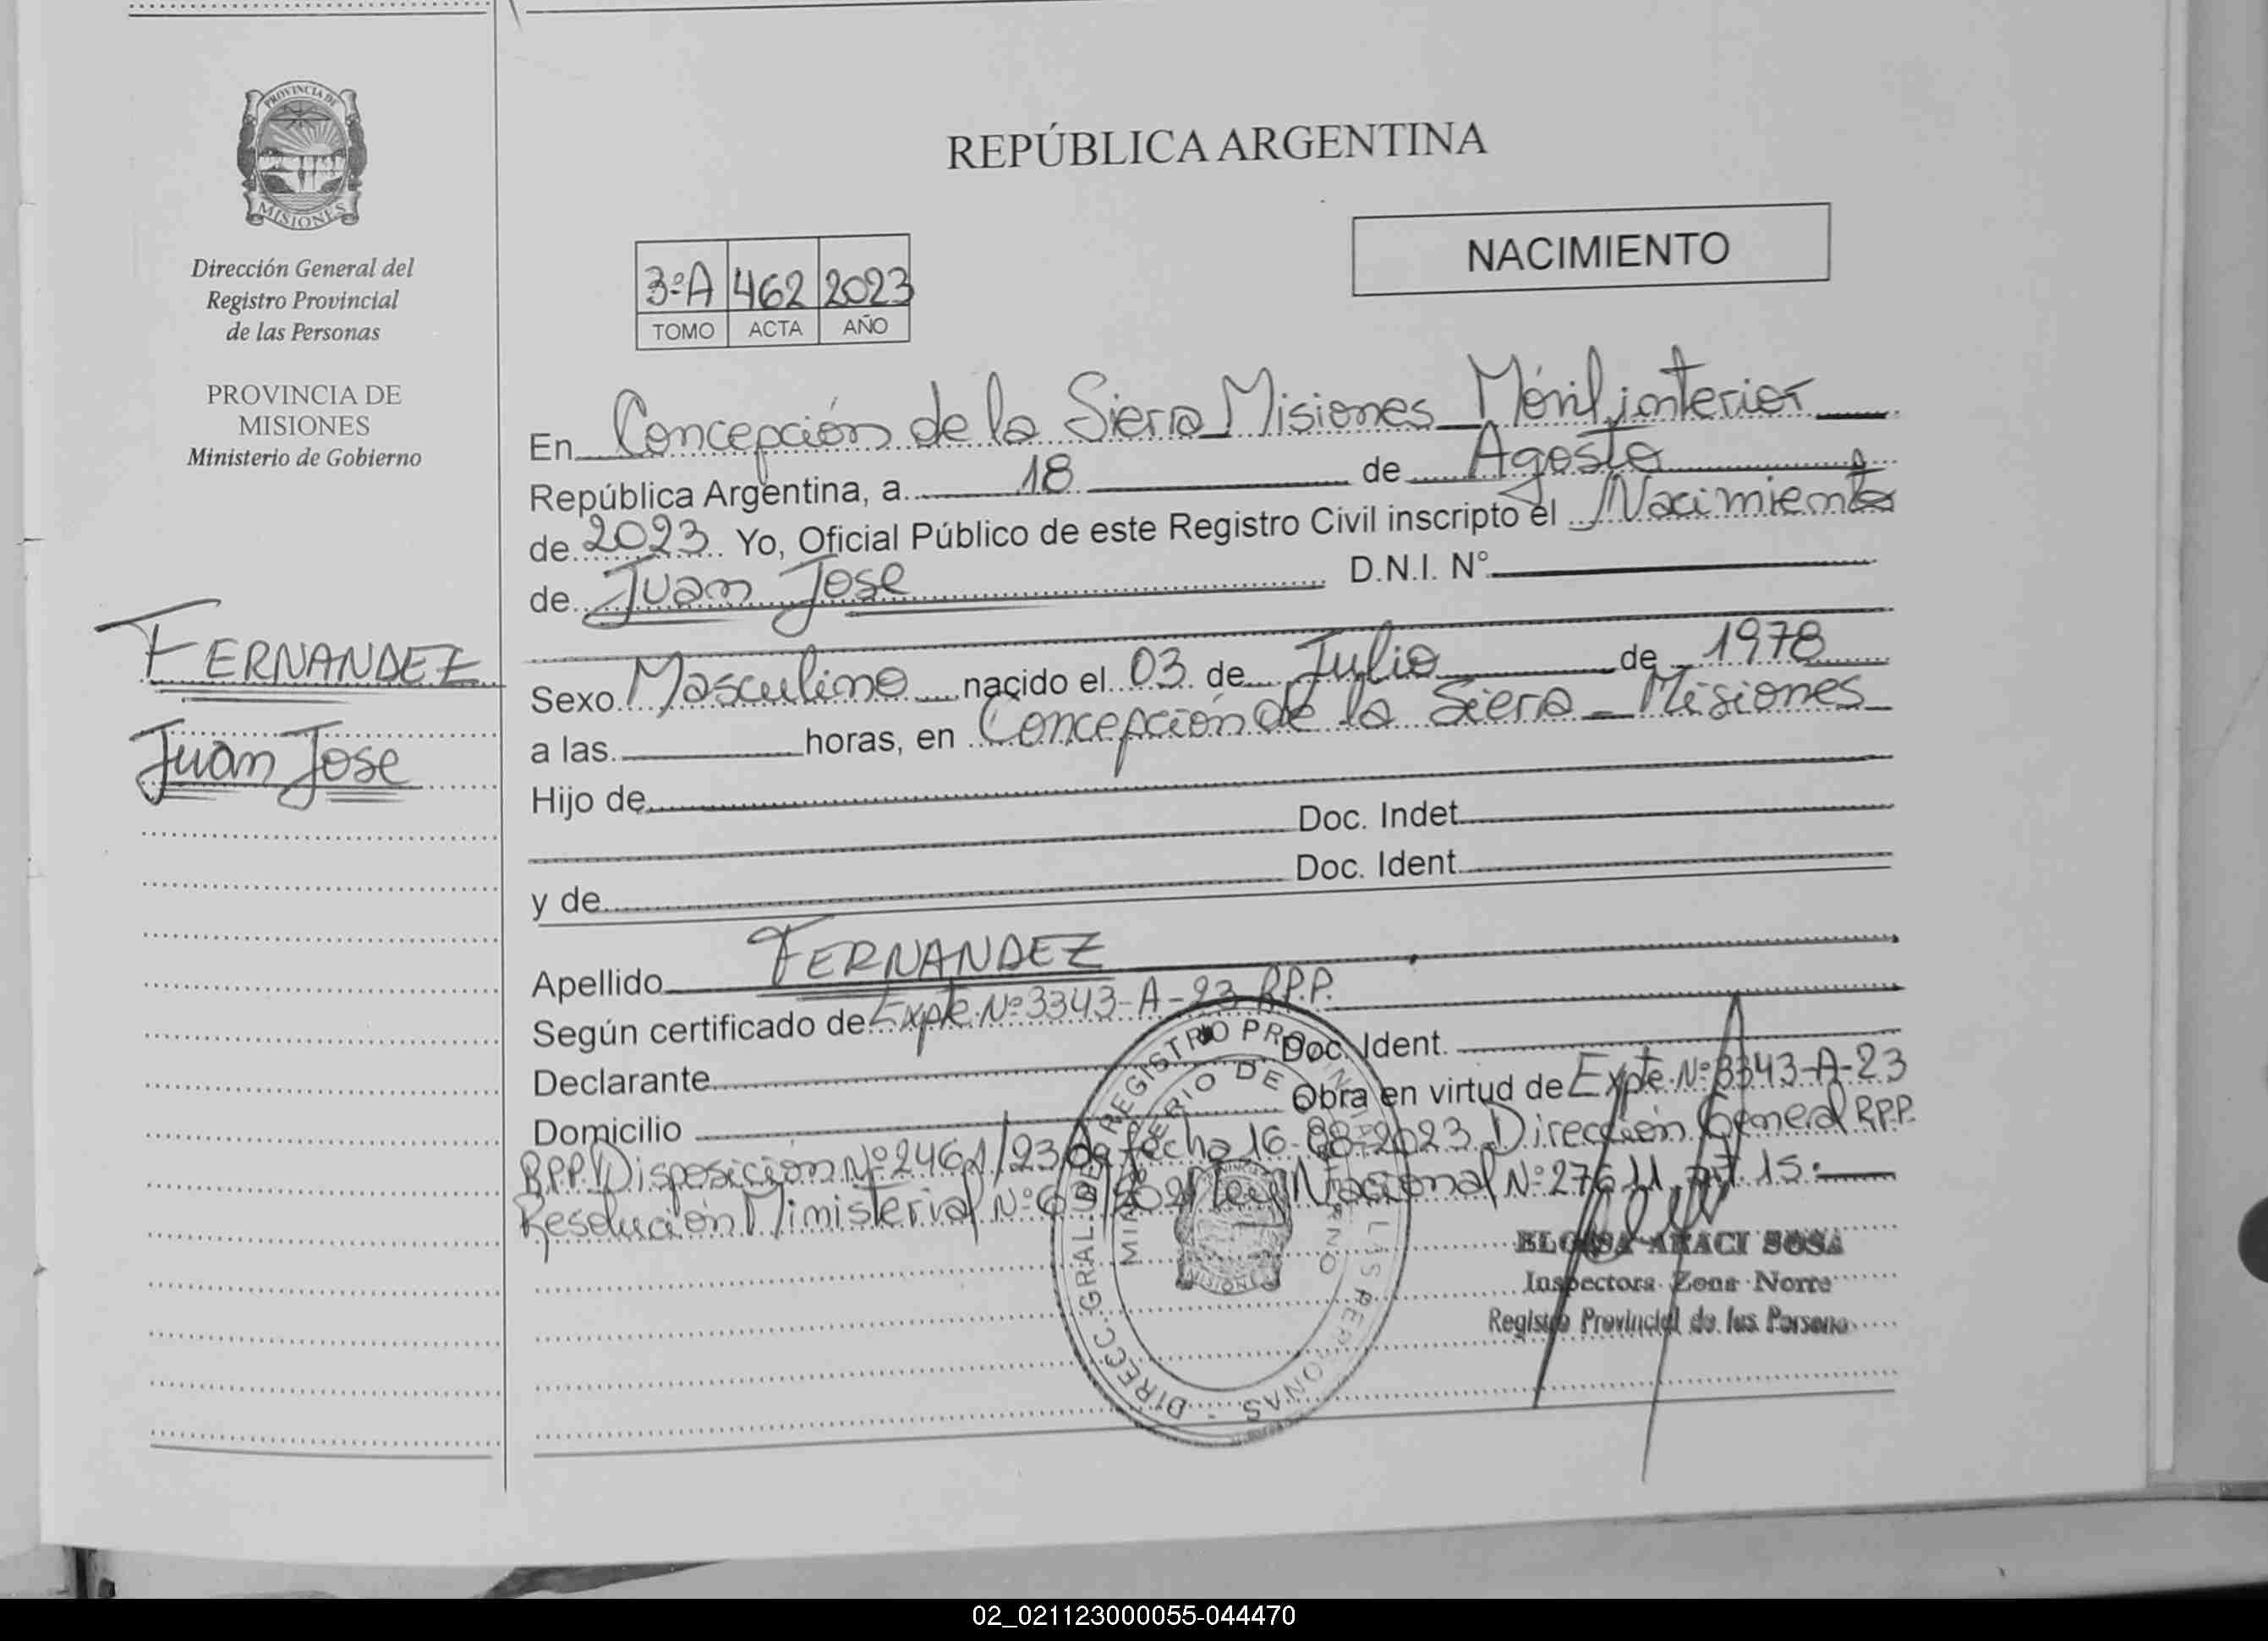 PROVINCIA DE
MISIONES
Dirección General del
Registro Provincial
de las Personas
PROVINCIA DE
MISIONES
Ministerio de Gobierno
FERNANDEZ
Juan Jose
REPÚBLICA ARGENTINA
NACIMIENTO
3ºA 462 2023
TOMO ACTA AÑO
En Concepción de la Sierra Misiones Móvil interior
República Argentina, a 18 de Agosto
de 2023 Yo, Oficial Público de este Registro Civil inscripto el Nacimiento
de Juan Jose D.N.I. N°
Sexo Masculino nacido el 03 de Julio de 1978
a las horas, en Concepción de la Sierra - Misiones
Hijo de
Doc. Indet.
Doc. Ident.
y de
Apellido FERNANDEZ
Según certificado de Expte Nº 3343-A-23 RPP.
Declarante Doc. Ident.
Domicilio Obra en virtud de Expte Nº 3343-A-23
RPP. Disposición Nº 2461/23 de fecha 16-08-2023 Dirección General RPP.
Resolución Ministerial Nº Ley Nacional Nº 27611 art. 15.
DIRECC. GRAL. DEL REGISTRO PROVINCIAL DE LAS PERSONAS
MINISTERIO DE GOBIERNO
MISIONES
ELOISA ARACI SOSA
Inspectora Zona Norte
Registro Provincial de las Persona
02_021123000055-044470